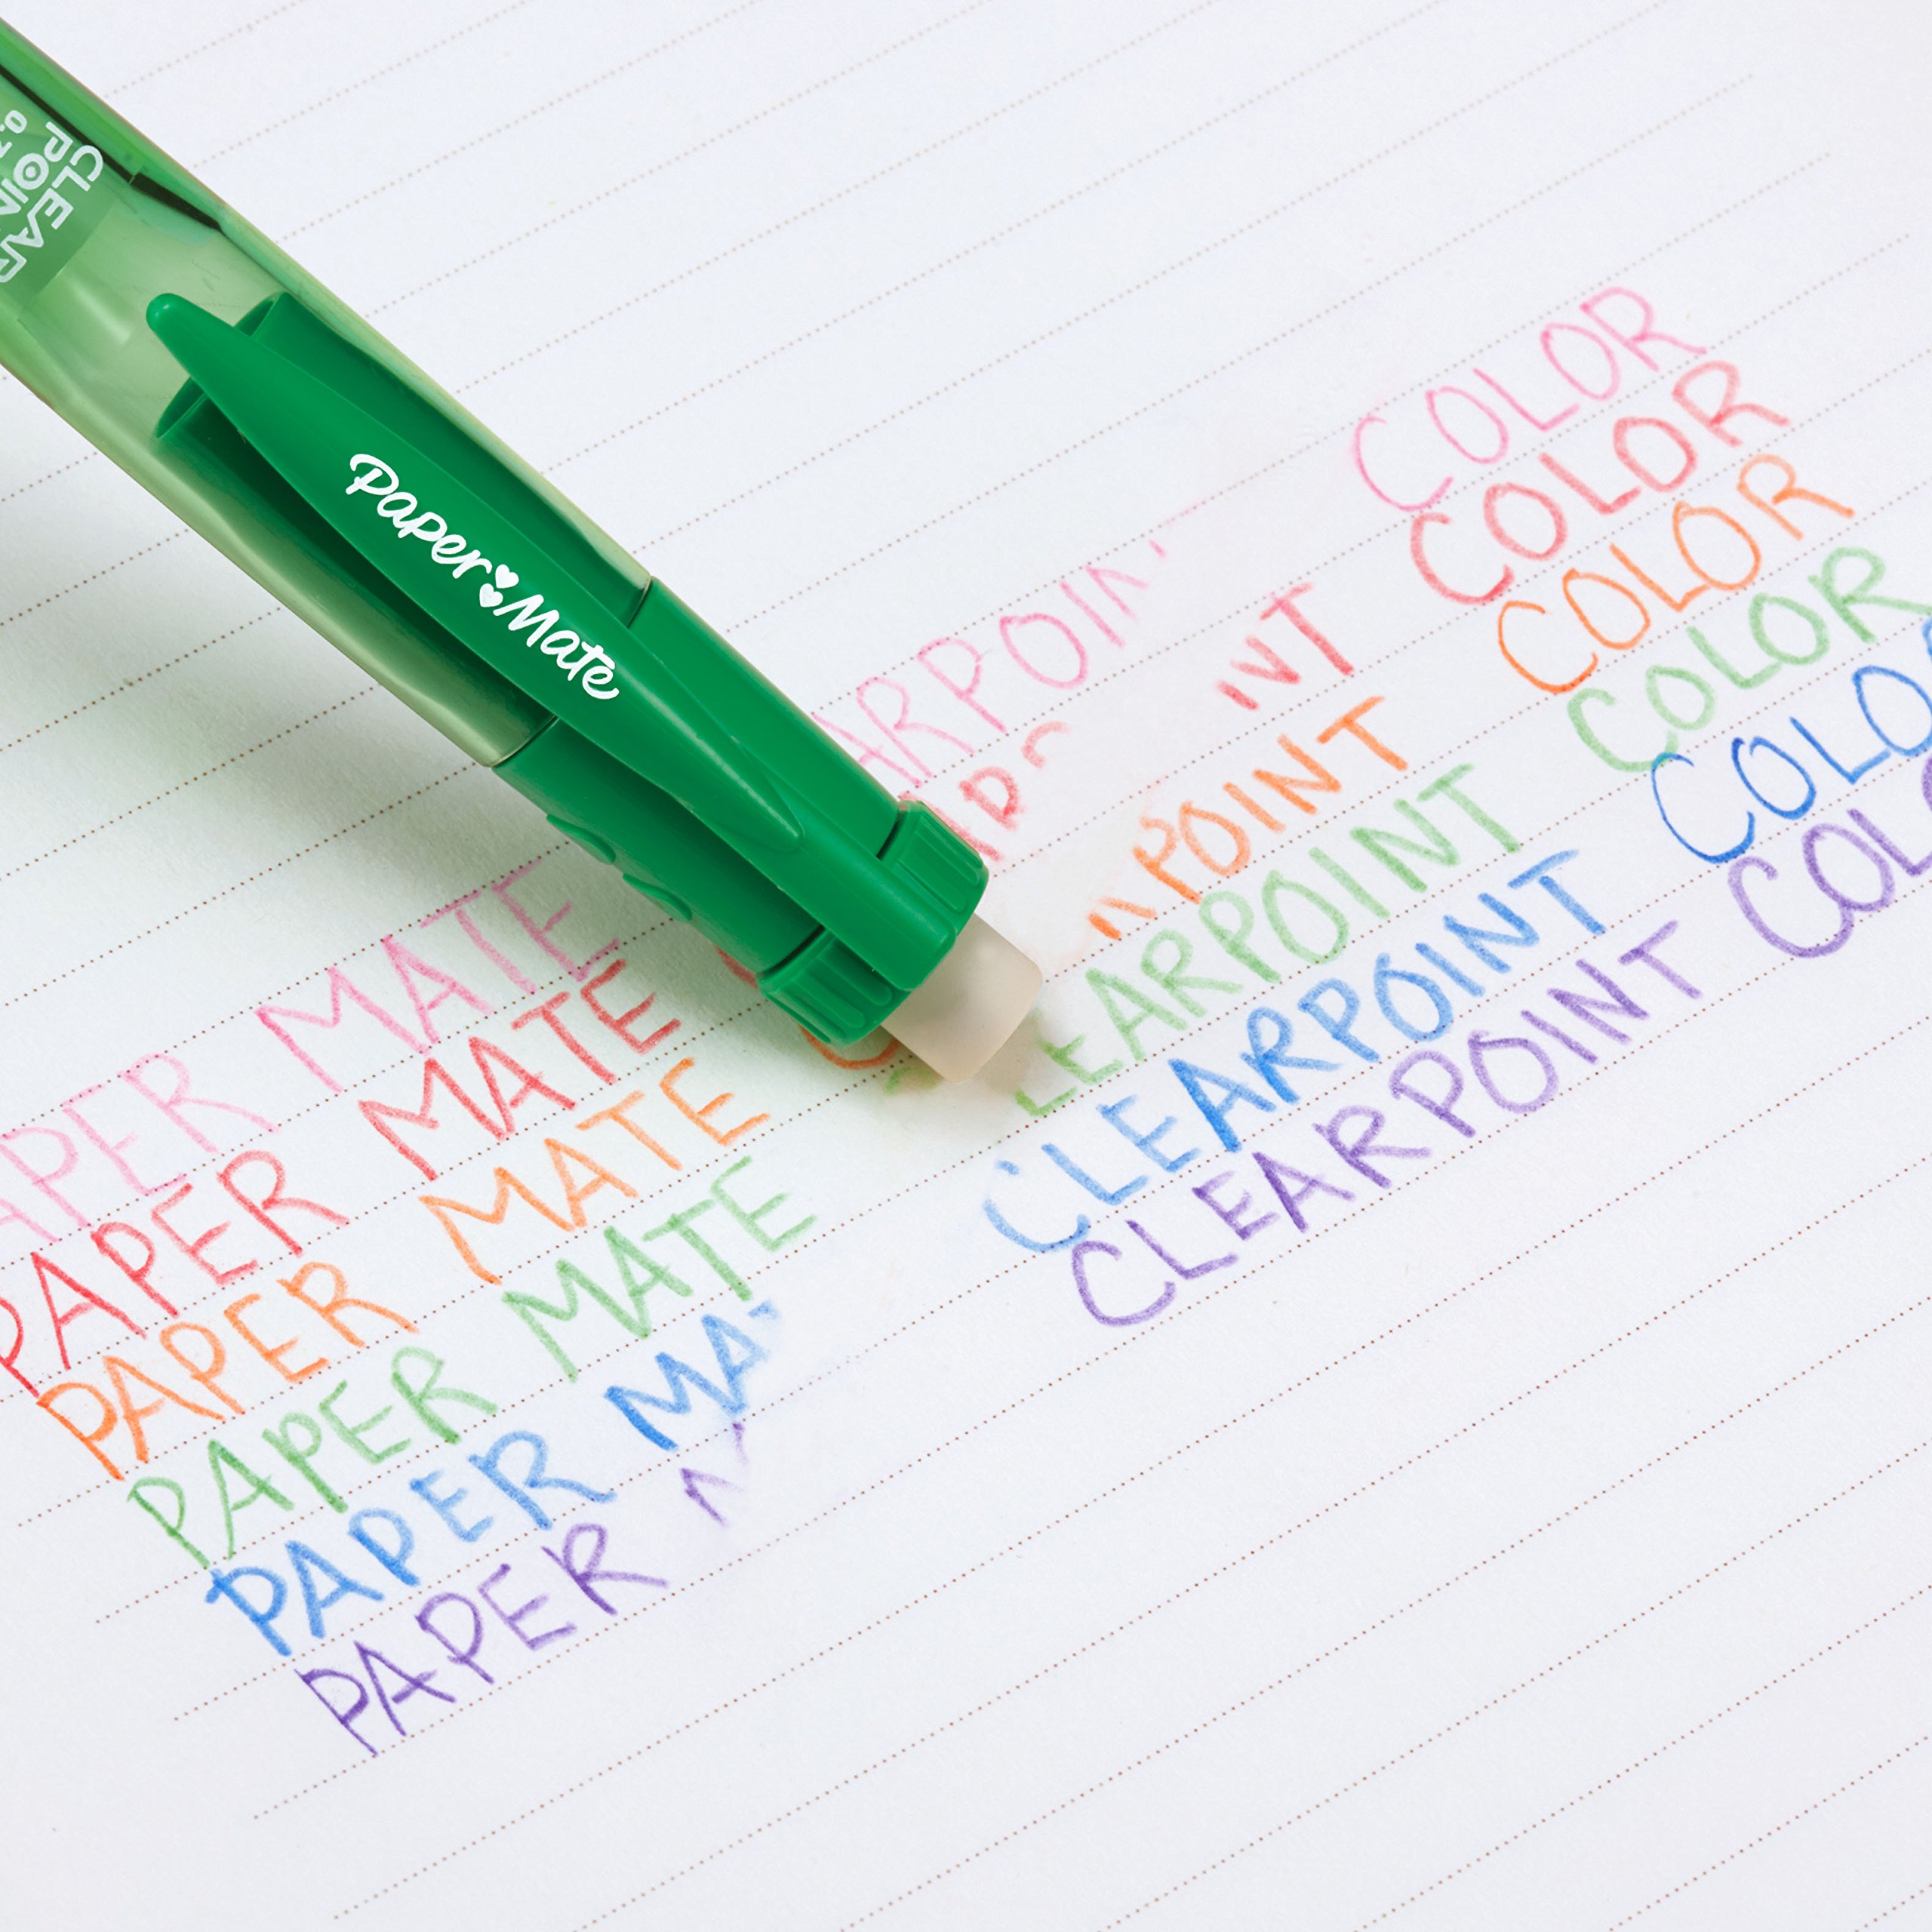 CLEAR
POINT
0.7
Paper Mate
APER MATE ARPOIN COLOR
PAPER MATE INT COLOR
PAPER MATE POINT COLOR
PAPER MATE LEARPOINT COLOR
PAPER MA CLEARPOINT COLO
PAPER CLEARPOINT COL